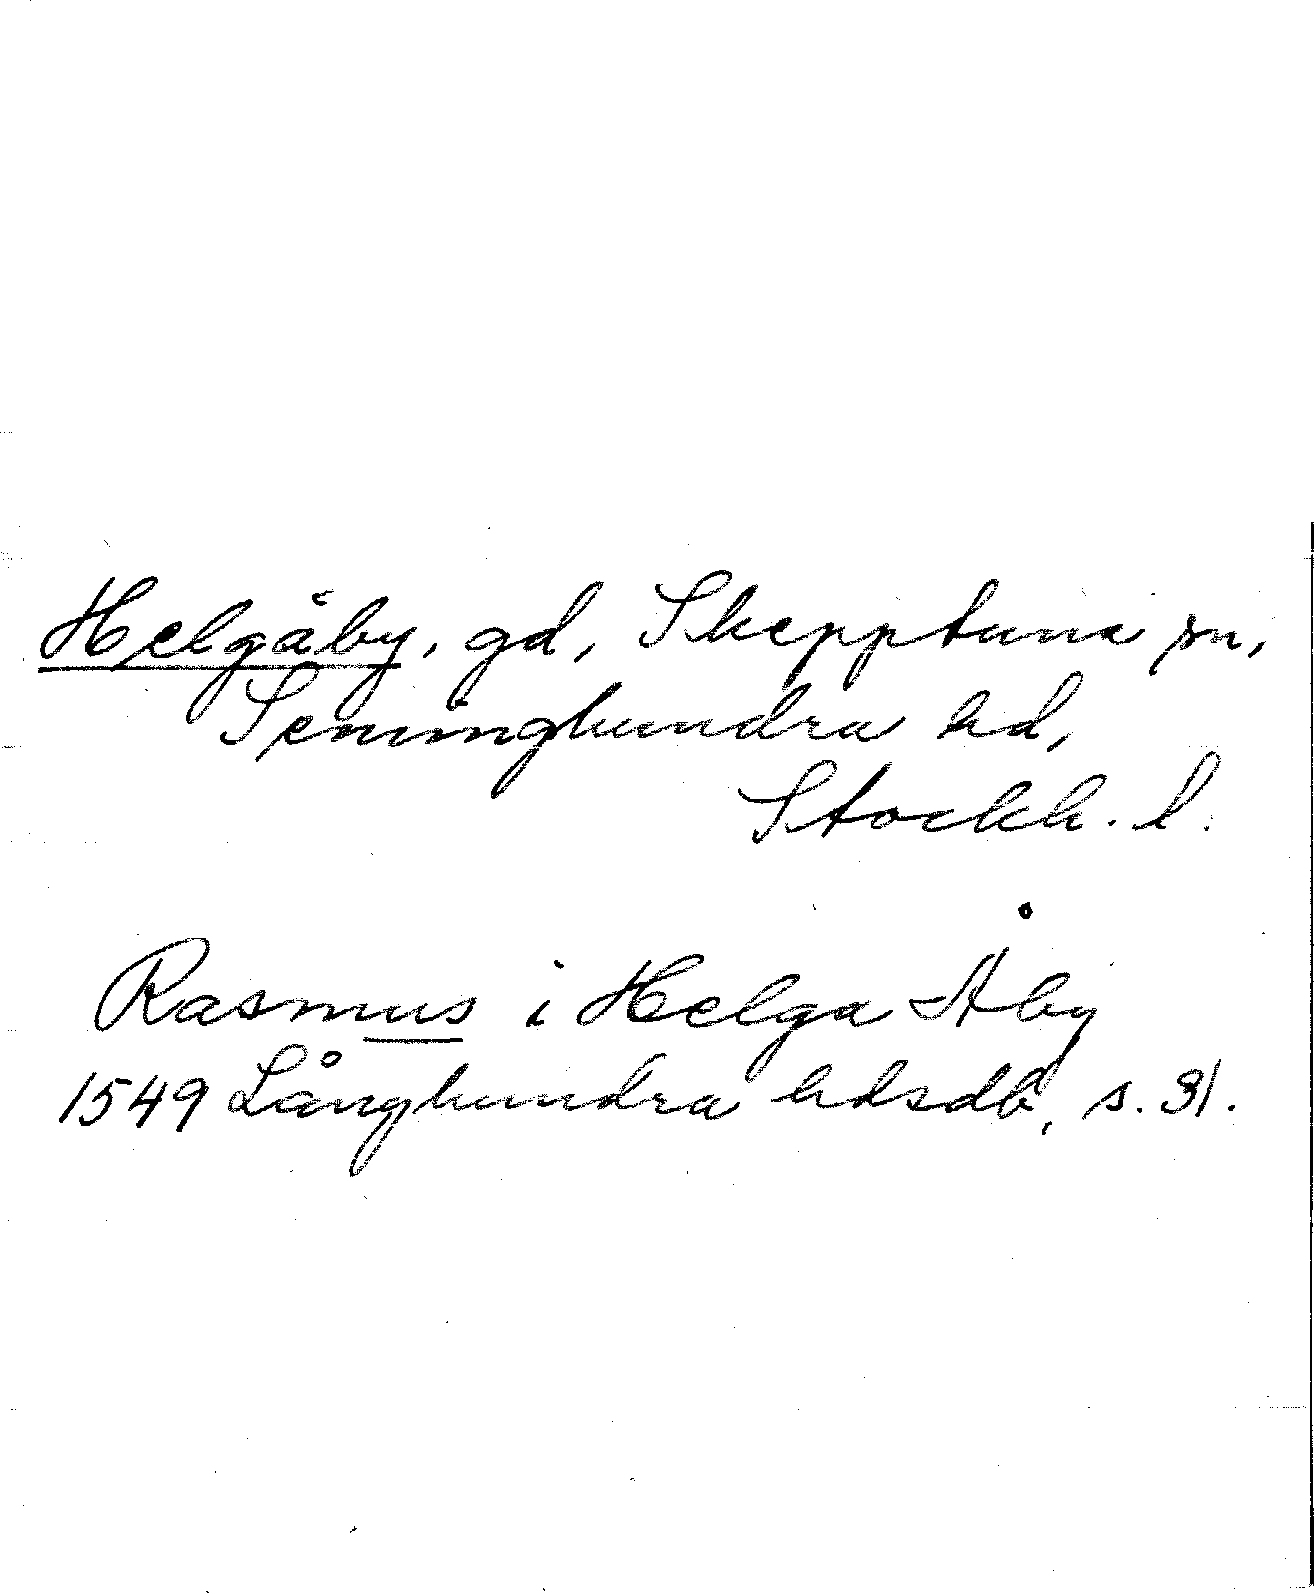 Helgåby, gd, Skepptuna sn,
Seminghundra hd,
Stockh. l.
Rasmus i Helga Åby
1549 Långhundra hdsdb, s. 31.